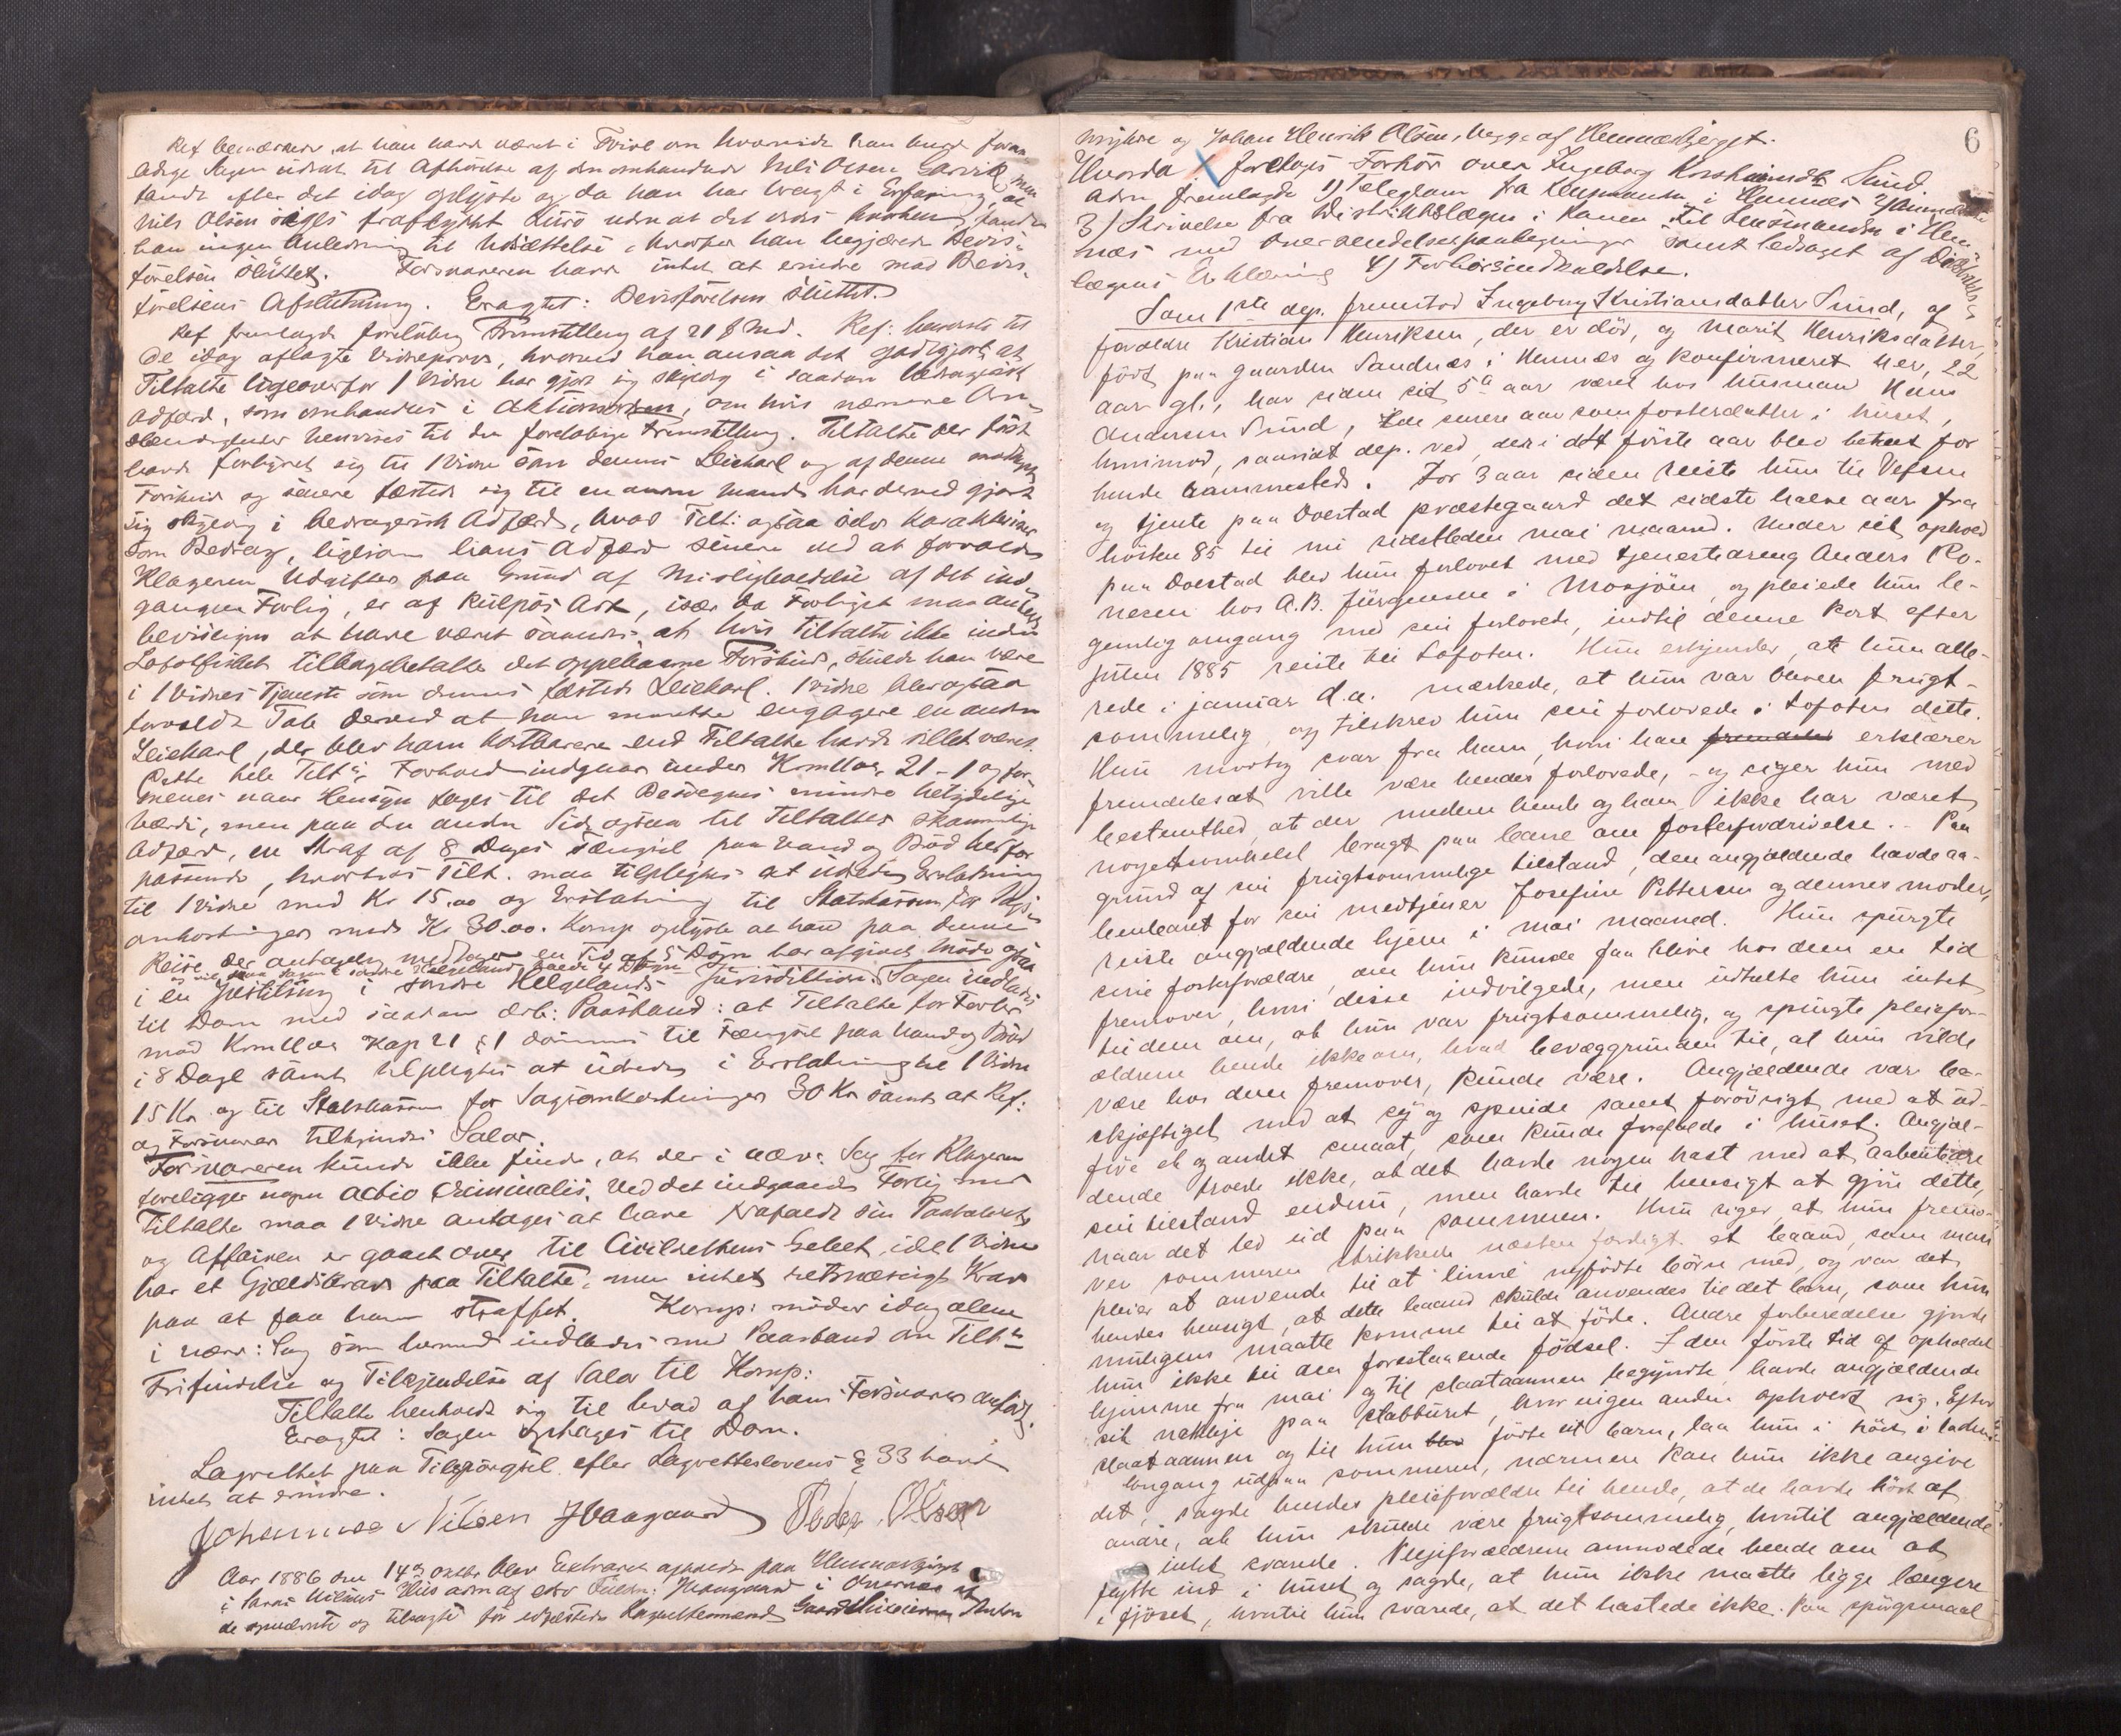 Ref bemærkede, at han havde været i Tvivl om hvorvidt han burde foran
ledige Sagen udsat til Afhörelse af den omhandlede Nils Olsen men
fandt efter det idag oplyste og da han har bragt i Erfaring, at
Nils Olsen siges fraflyttet Lurö uden at det vides hvorhen, fandt
han ingen Anledning til Udsættelse, hvorfor han begjærede Bevis-
förelsen sluttet. Forsvareren havde intet at erindre mod Bevis-
förelsens Afslutning. Eragtet: Bevisförelsen sluttet.
Ref fremlagde foreløbig Fremstilling af 21 f Md. Ref: henviste til
de idag aflagte Vidneprover, hvorved han ansaa det godtgjort, at
Tiltalte ligeoverfor 1 Vidne har gjort sig skyldig i saadan bedragersk
Adfærd, som omhandles i Aktionsordren, om hvis nærmere Om-
stændigheder henvises til den foreløbige Fremstilling. Tiltalte der först
havde forhyret sig til 1 Vidne som dennes Leiekarl og af denne modtaget
Forskud og senere fæstede sig til en anden Mand har derved gjort
sig skyldig i bedragersk Adfærd, hvad Tilt: ogsaa selv karakteriserer
som Bedrag, ligesom hans Adfærd senere ved at forvolde
Klageren Udgifter paa Grund af Misligholdelse af det ind
gangne Forlig, er af kulpös Art, især da Forliget maa antages
bevisligen at have været saaledes, at hvis Tiltalte ikke inden
Lofotfisket tilbagebetalte det oppebaarne Forskud, skulde han være
i 1 Vidnes Tjeneste som dennes fæstede Leiekarl. 1 Vidne blev ogsaa
forvoldt Tab derved at han maatte engagere en anden
Leiekarl, der blev ham kostbarere end Tiltalte havde villet været.
Dette hele Tilt's Forhold indgaar under Krmllov 21-1 og for
menes naar Hensyn tages til det Besvegnes mindre betydelige
Værdi, men paa den anden Side ogsaa til Tiltaltes skammelige
Adfærd, en Straf af 8 Dages Fængsel paa Vand og Bröd herfor
passende, hvorhos Tilt. maa tilpligtes at udrede Erstatning
til 1 Vidne med Kr 15.00 og Erstatning til Statskassen for Sags
omkostninger med Kr 30.00. Komp oplyste at han paa denne
Reise der antagelig medtager en Tid af 5 Dögn har afgivet Möde ogsaa
i en Jusitilsing i söndre Helgelands Jurisdiktion. Sagen indlades
til Dom med saadan deb: Paastand: at Tiltalte for Forbr
mod Krmllov Kap 21 § 1 dömmes til Fængsel paa Vand og Bröd
i 8 Dage samt tilpligtes at udrede i Erstatning til 1 Vidne
15 Kr og til Statskassen for Sagsomkostninger 30 Kr samt at Ref:
og Forsvarer tilkjendes Salar.
Forsvareren kunde ikke finde, at der i nærv: Sag for Klageren
foreligger nogen actio criminalis. Ved det indgaaede Forlig med
Tiltalte maa 1 Vidne antages at have frafaldt sin Paatalerets
og Affairen er gaaet over til Civilrettens Gebet, idet 1 Vidne
har et Gjældskrav paa Tiltalte, men intet retmæssigt Krav
paa at faa ham straffet. Komp: möder idag alene
i nærv: Sag som hermed indlades med Paastand om Tilts
Frifindelse og Tilkjendelse af Salar til Komp:
Tiltalte henholdt sig til hvad af hans Forsvarer anfört.
Eragtet: Sagen optages til Dom.
Lagrettet paa Tilspörgsel efter Lagrettelovens § 33 havde
intet at erindre.
Johannes Nilsen JHaagaard Peder Olsen
Aar 1886 den 14de Oktbr blev Extraret afholdt paa Hemnæsbjerget
i Hus adm af
de opnævnte og tilsagte for edfæstede Lagrettesmænd Anton
6
og Johan Henrik Olsen, begge af Hemnæsbjerget.
Hvorda X foretoges Forhör over Ingeborg Kristiansdtr Sund.
Adm fremlagde 1) Telegram fra Lensmanden i Hemnæs 2)
3) Skrivelse fra Distriktslægen i Ranen til Lensmanden i Hem-
næs med Oversendelsespaategninger samt ledsaget af Distrikts-
lægens Erklæring 4) Forhörsindkaldelse.
Som 1ste dep. fremstod Ingeborg Kristiansdatter Sund, af
forældre Kristian Henriksen, der er död, og Marit Henriksdatter,
födt paa gaarden Sandnæs i Hemnæs og konfirmeret her, 22
aar gl., har siden sit 5te aar været hos husmand Hans
Andersen Sund, de senere aar som fosterdatter i huset,
hvorimod, saavidt dep. ved, der i det förste aar blev betalt for
hende sammesteds. For 3 aar siden reiste hun til Vefsen
og tjente paa Dolstad præstegaard det sidste halve aar fra
hösten 85 til nu sidstleden mai maaned. Under sit ophold
paa Dolstad blev hun forlovet med tjenestedreng Anders Ro-
nesen hos A.B. Jürgensen i Mosjöen, og pleiede hun le-
gemlig omgang med sin forlovede, indtil denne kort efter
julen 1885 reiste til Lofoten. Hun erkjender, at hun alle-
rede i januar d.a. mærkede, at hun var bleven frugt-
sommelig, og tilskrev hun sin forlovede i Lofoten dette.
Hun modtog svar fra ham, hvori han erklærer
fremdeles at ville være hendes forlovede, - og siger hun med
bestemthed, at der mellem hende og ham ikke har været
nogetsomhelst bragt paa bane om fosterfordrivelse. - Paa
grund af sin frugtsommelige tilstand, den angjældende havde aa-
benbaret for sin medtjener Josefine Pettersen og dennes moder,
reiste angjældende hjem i mai maaned. Hun spurgte
sine fosterforældre, om hun kunde faa blive hos dem en tid
fremover, hvori disse indvilgede, men udtalte hun intet
til dem om, at hun var frugtsommelig, og spurgte pleiefor-
ældrene hende ikke om, hvad bevæggrunden til, at hun vilde
være hos dem fremover, kunde være. Angjældende var be-
skjæftiget med at sy og spinde samt forövrigt med at ud-
före et og andet smaat, som kunde forefalde i huset. Angjæl-
dende troede ikke, at det havde nogen hast med at aabenbare
sin tilstand endnu, men havde til hensigt at gjöre dette,
naar det led ud paa sommeren. Hun siger, at hun fremo-
ver sommeren strikkede næsten færdigt et baand, som man
pleier at anvende til at "linne" nyfödte börn med, og var det
hendes hensigt, at dette baand skulde anvendes til det barn, som hun
muligens maatte komme til at föde. Andre forberedelser gjorde
hun ikke til den forestaaende födsel. I den förste tid af opholdet
hjemme fra mai og til slaataannen begyndte, havde angjældende
sit natteleje paa stabburet, hvor ingen anden opholdt sig. Efter
slaataannen og til hun födte sit barn, laa hun i höet i laden.
Engang udpaa sommeren, nærmere kan hun ikke angive
det, sagde hendes pleieforældre til hende, at de havde hört af
andre, at hun skulde være frugtsommelig, hvortil angjældende
intet svarede. Pleieforældrene anmodede hende om at
flytte ind i huset og sagde, at hun ikke maatte ligge længere
i fjöset, hvortil hun svarede, at det hastede ikke. Paa spörgsmaal